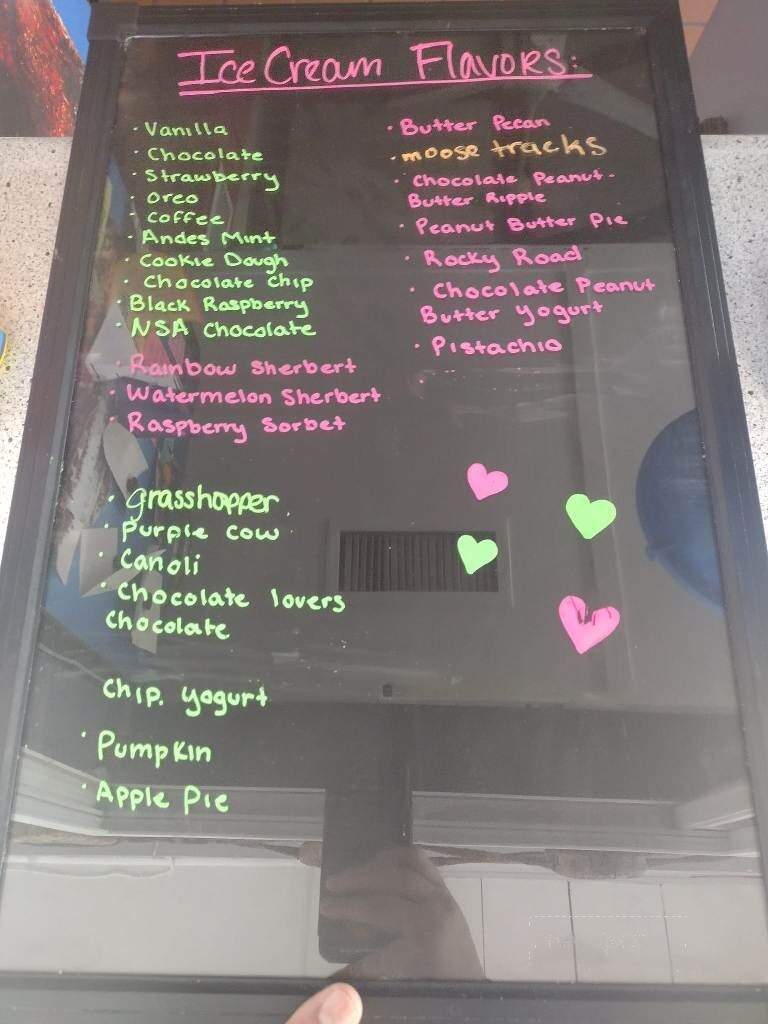 Ice Cream Flavors:
· Vanilla
· Chocolate
· Strawberry
· Oreo
· Coffee
· Andes Mint
· Cookie Dough
· Chocolate Chip
· Black Raspberry
· NSA Chocolate
· Rainbow Sherbert
· Watermelon Sherbert
· Raspberry Sorbet
· grasshopper
· Purple Cow
· Canoli
· Chocolate lovers
chocolate
Chip. Yogurt
· Pumpkin
· Apple Pie
· Butter Pecan
· moose tracks
· Chocolate Peanut-
Butter Ripple
· Peanut Butter Pie
· Rocky Road
· Chocolate Peanut
Butter Yogurt
· Pistachio